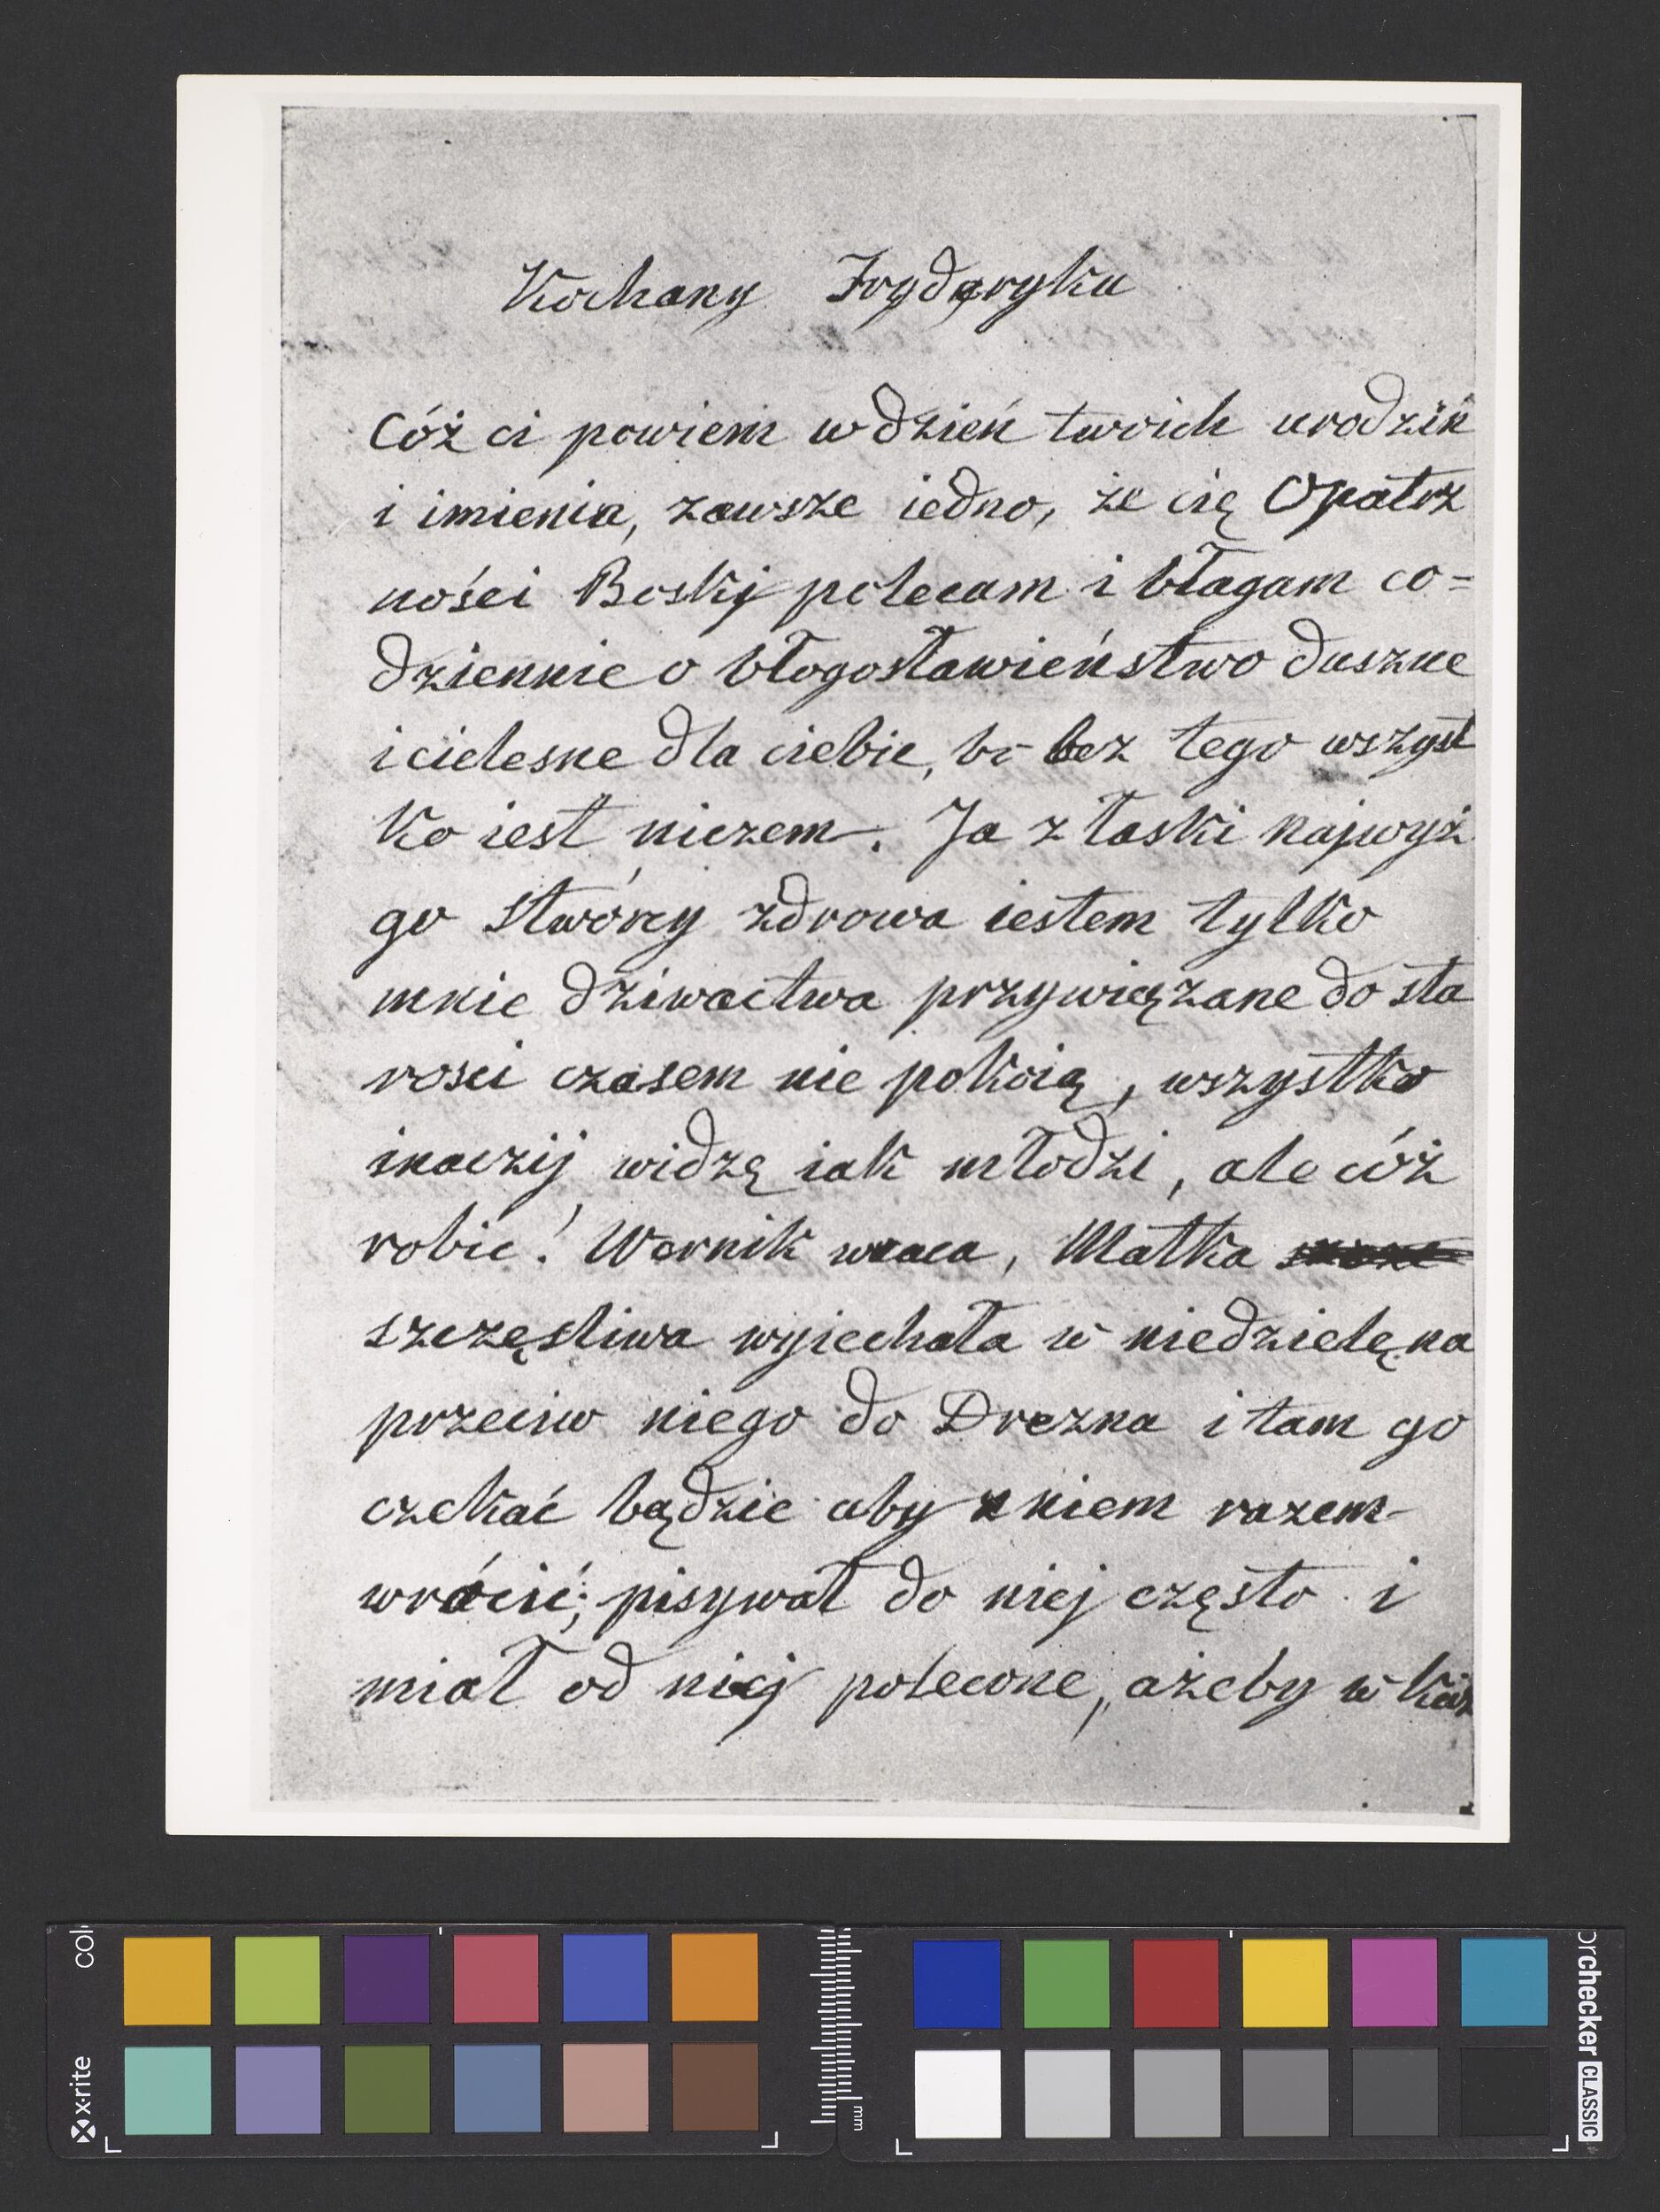 Kochany Frydyryku
Cóż ci powiem w dzień twoich urodzin
i imienia, zawsze iedno, że cię Opatrz
ności Boskij polecam i błagam co=
dziennie o błogosławieństwo duszne
i cielesne dla ciebie, bo bez tego wszyst
ko iest niczem. Ja z łaski najwyż
go Stwórcy zdrowa iestem tylko
mnie dziwactwa przywiązane do sta
rosci czasem nie pokoią, wszystko
inaczij widzę iak młodzi, ale cóż
robić! Wernik wraca, Matka
szczęsliwa wyiechała w niedzielę na
przeciw niego do Drezna i tam go
czekać bądzie aby z niem razem
wrócić; pisywał do niej często i
miał od niej polecone, ażeby w każ
x·rite
col
mm
orchecker CLASSIC